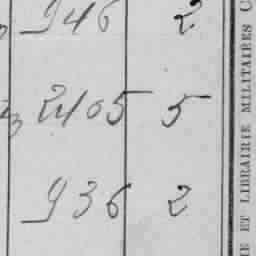 946 2
2405 5
936 2
IE ET LIBRAIRIE MILITAIRES